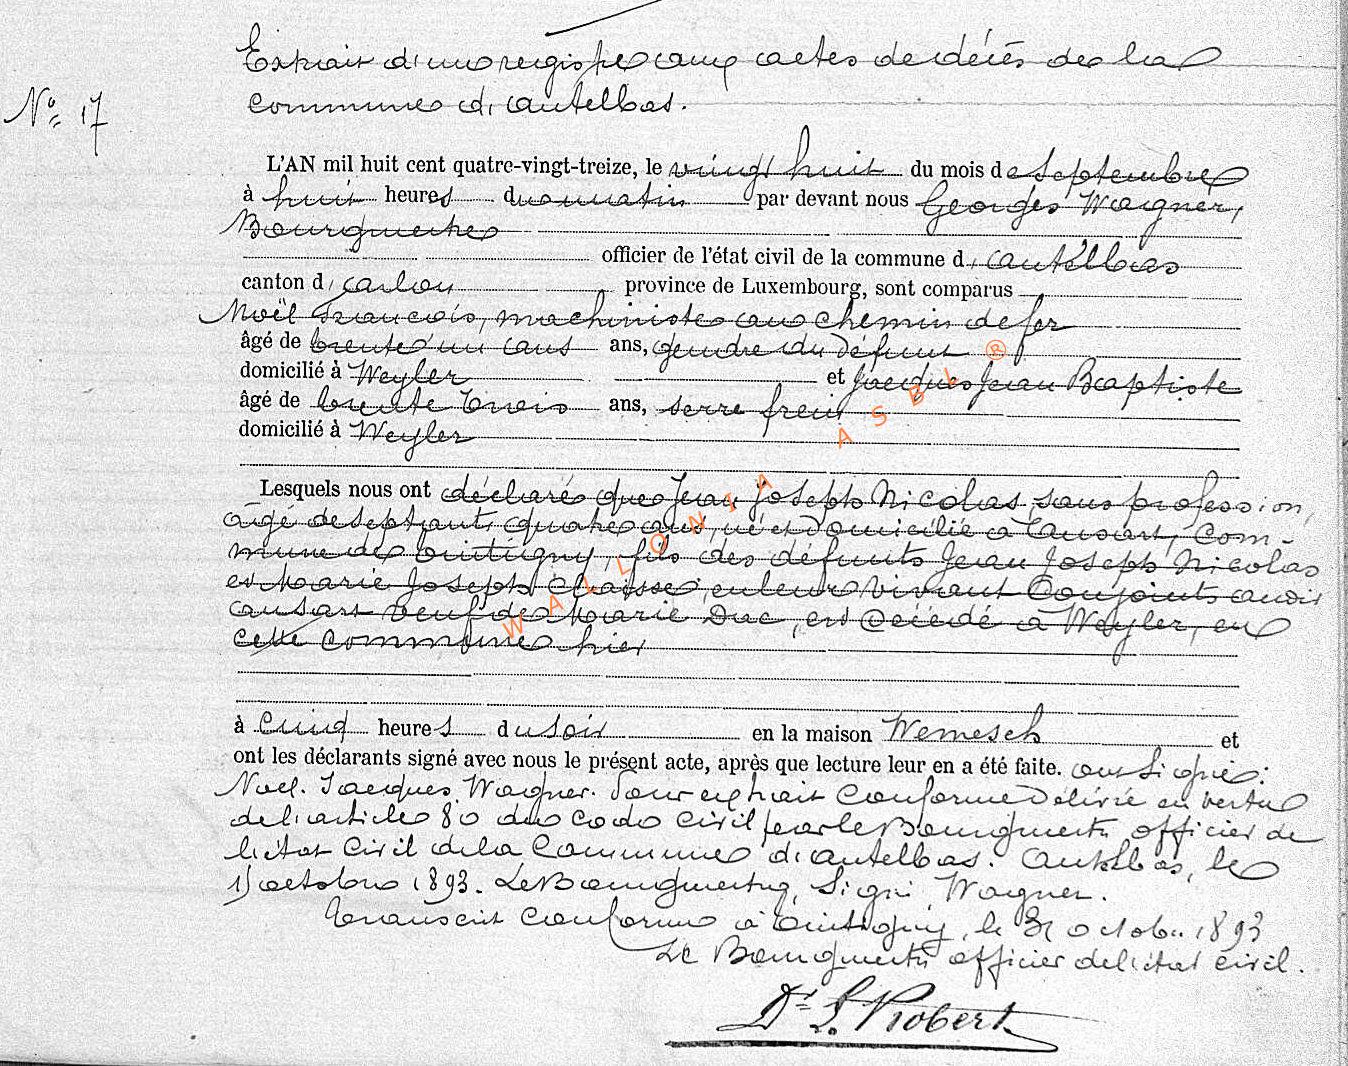 Extrait d'un registre aux actes de décès de la
commune d'autelbas.
N° 17
L'AN mil huit cent quatre-vingt-treize, le vingt huit du mois de Septembre
à huit heures du matin par devant nous Georges Wagner,
Bourgmestre
officier de l'état civil de la commune d'autelbas
canton d'arlon province de Luxembourg, sont comparus
Noël François, machiniste au chemin de fer
âgé de trente un ans ans, gendre du défunt
domicilié à Weyler et Jacques Jean Baptiste
âgé de trente trois ans, serre frein
domicilié à Weyler
Lesquels nous ont déclaré que Jean Joseph Nicolas, sans profession,
âgé de septante quatre ans, né et domicilié à ansart, com-
mune de tintigny, fils des défunts Jean Joseph Nicolas
et Marie Joseph Claisse, en leur vivant Conjoints audit
ansart veuf de Marie Duc, est décédé à Weyler, en
cette commune hier
à Cinq heures du soir en la maison Wemesch et
ont les déclarants signé avec nous le présent acte, après que lecture leur en a été faite. ont Signé:
Noel. Jacques. Wagner. Pour extrait Conforme Délivré en vertu
de l'article 80 du code Civil par le Bourgmestre officier de
l'état Civil de la Commune d'autelbas. autelbas, le
octobre 1893. Le Bourgmestre, Signé, Wagner.
Transcrit Conforme à tintigny, le 31 octobre 1893
Le Bourgmestre officier de l'état civil.
Dr L. Robert
WALLONIA ASBL ®